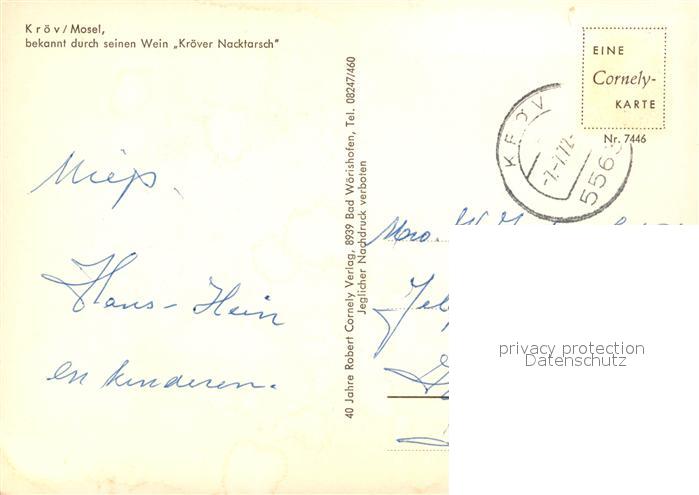 Kröv/Mosel,
bekannt durch seinen Wein „Kröver Nacktarsch"
EINE
Cornely-
KARTE
Nr. 7446
KRÖV
-7.-7.72-
556
Miep.
Hans-Hein
en kinderen.
40 Jahre Robert Cornely Verlag, 8939 Bad Wörishofen, Tel. 08247/460
Jeglicher Nachdruck verboten
privacy protection
Datenschutz